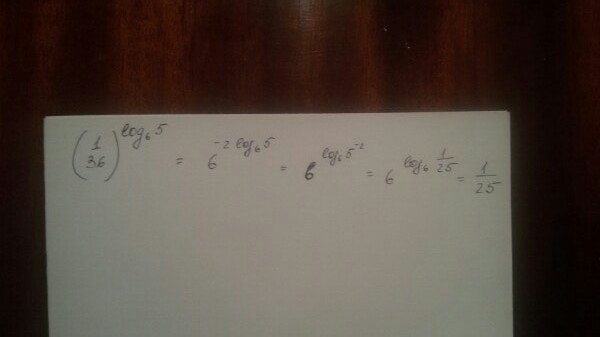 (1/36)^log₆5 = 6^-2 log₆5 = 6^log₆5⁻² = 6^log₆ 1/25 = 1/25